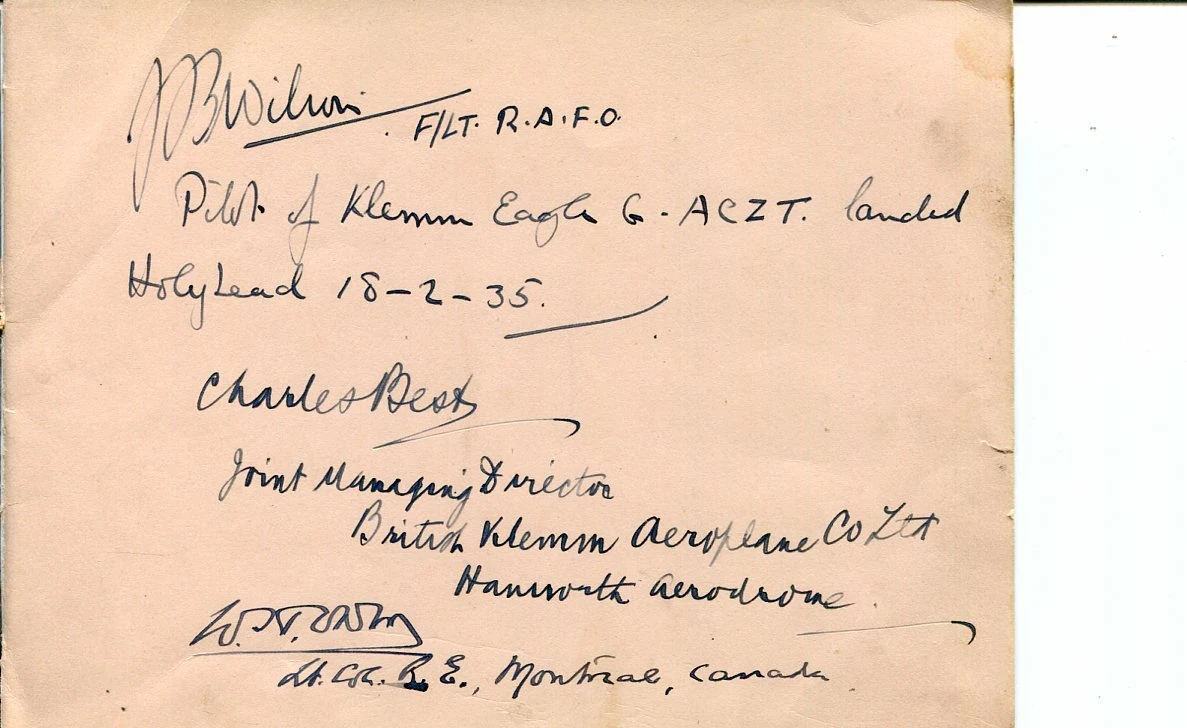 JB Wilson F/LT. R.A.F.O.
Pilot of Klemm Eagle G-ACZT. landed
Holyhead 18-2-35.
Charles Best
Joint Managing Director
British Klemm Aeroplane Co Ltd
Hanworth Aerodrome.
Lt. Col. R.E., Montreal, Canada